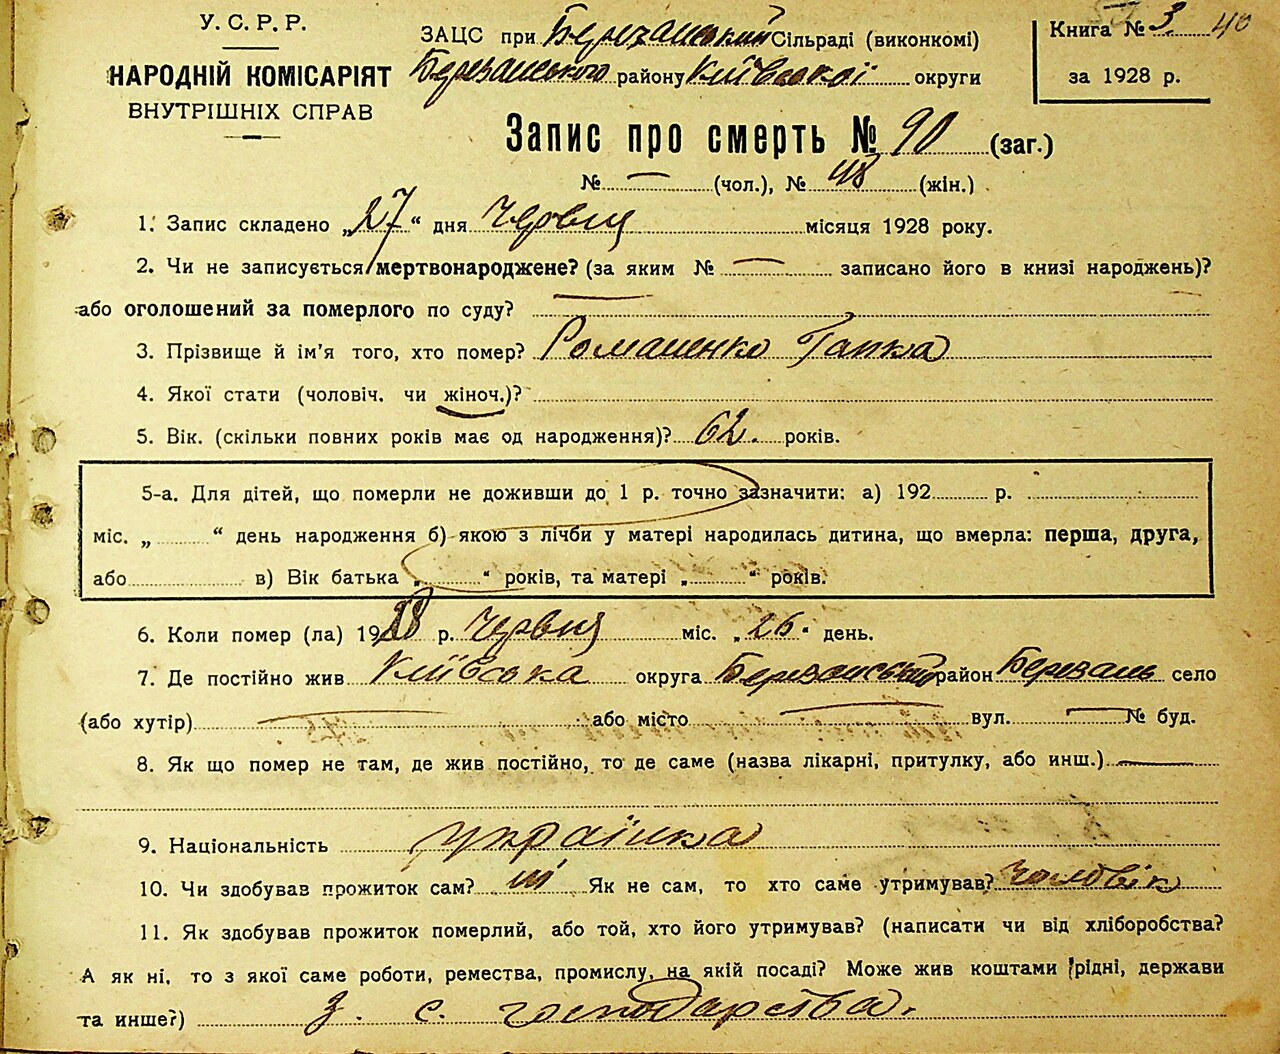 У. С. Р. Р.
НАРОДНІЙ КОМІСАРІЯТ
ВНУТРІШНІХ СПРАВ
ЗАЦС при Березанський Сільраді (виконкомі)
Березанського району Київської округи
Книга № 3. 40
за 1928 р.
Запис про смерть № 90 (заг.)
№ — (чол.), № 48 (жін.)
1. Запис складено „27“ дня Червня місяця 1928 року.
2. Чи не записується мертвонароджене? (за яким № — записано його в книзі народжень)?
або оголошений за померлого по суду? —
3. Прізвище й ім'я того, хто помер? Романенко Гапка
4. Якої стати (чоловіч. чи жіноч.)?
5. Вік. (скільки повних років має од народження)? 62. років.
5-а. Для дітей, що померли не доживши до 1 р. точно зазначити: а) 192 р.
міс. „ “ день народження б) якою з лічби у матері народилась дитина, що вмерла: перша, друга,
або в) Вік батька „ “ років, та матері „ “ років.
6. Коли помер (ла) 1928 р. Червня міс. „26“ день.
7. Де постійно жив Київська округа Березанський район Березань село
(або хутір) — або місто — вул. — № буд.
8. Як що помер не там, де жив постійно, то де саме (назва лікарні, притулку, або инш.) —
9. Національність українка
10. Чи здобував прожиток сам? ні Як не сам, то хто саме утримував? чоловік
11. Як здобував прожиток померлий, або той, хто його утримував? (написати чи від хліборобства?
А як ні, то з якої саме роботи, ремества, промислу, на якій посаді? Може жив коштами рідні, держави
та инше?) з. с. господарства.